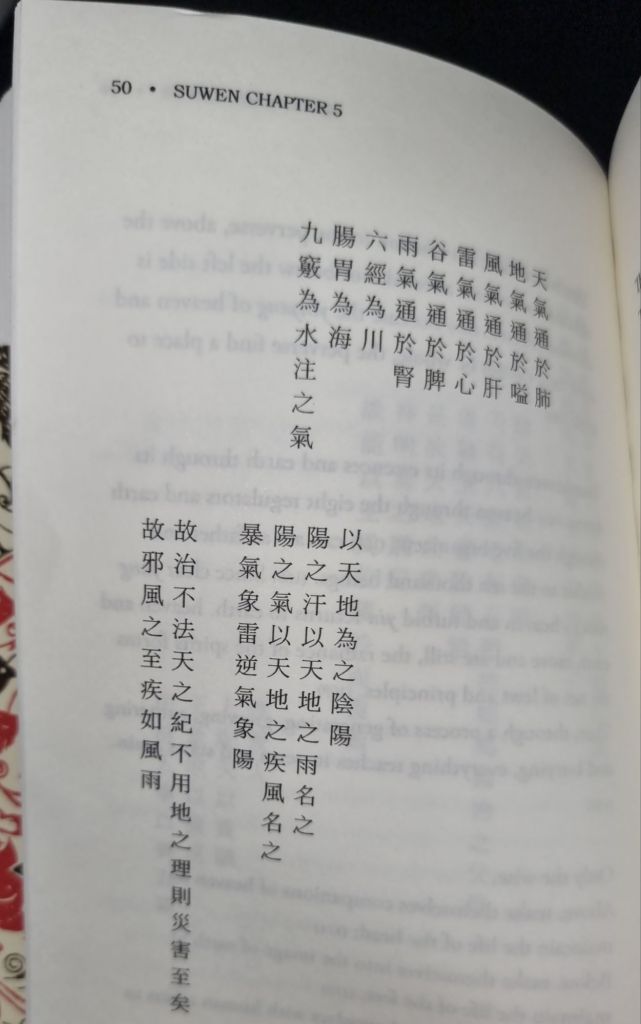 50 • SUWEN CHAPTER 5
天氣通於肺
地氣通於嗌
風氣通於肝
雷氣通於心
谷氣通於脾
雨氣通於腎
六經為川
腸胃為海
九竅為水注之氣
以天地為之陰陽
陽之汗以天地之雨名之
陽之氣以天地之疾風名之
暴氣象雷逆氣象陽
故治不法天之紀不用地之理則災害至矣
故邪風之至疾如風雨